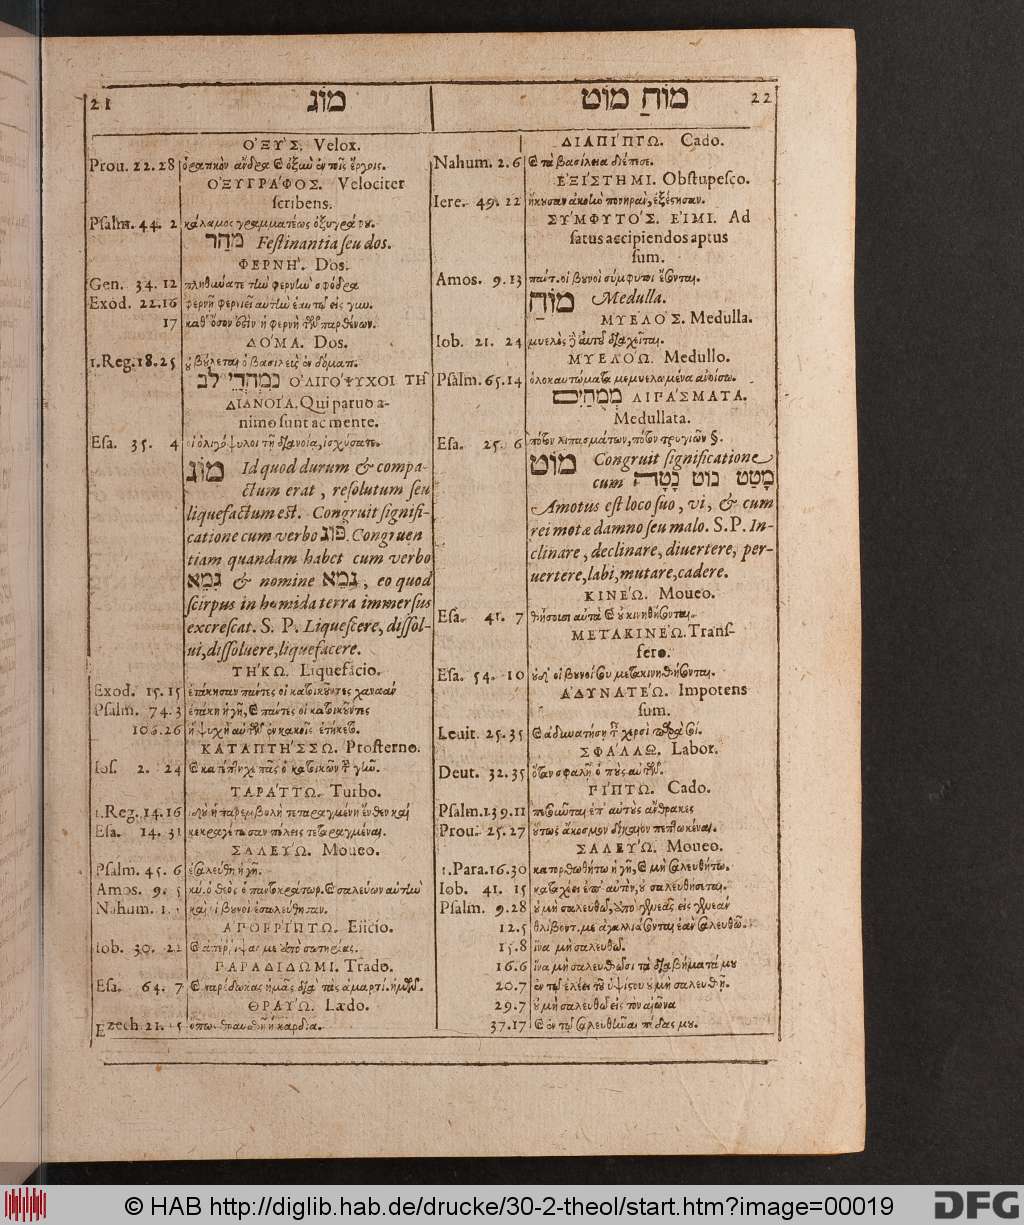 21 מוֹג
ὈΞΥΣ. Velox.
Prou. 22. 28 ὁρατικὸν ἄνδρα
ὈΞΥΓΡΆΦΟΣ. Velociter
scribens.
Psalm. 44. 2 κάλαμος γραμματέως ὀξυγράφου.
מֹהַר Festinantia seu dos.
ΦΕΡΝΉ. Dos.
Gen. 34. 12 πληθύνατε τὴν φερνὴν σφόδρα
Exod. 22.16 φερνῇ φερνιεῖ αὐτὴν
17 καθ' ὅσον ἐστὶν ἡ φερνὴ τῶν παρθένων.
ΔΌΜΑ. Dos.
1.Reg.18.25 ὁ βασιλεὺς ἐν δόματι.
נִמְהֲרֵי לֵב ὈΛΙΓΌΨΥΧΟΙ ΤΗ͂
ΔΙΑΝΟΊΑ. Qui paruo a-
nimo sunt ac mente.
Esa. 35. 4 οἱ ὀλιγόψυχοι τῇ διανοίᾳ, ἰσχύσατε.
מוֹג Id quod durum & compa-
ctum erat, resolutum seu
liquefactum est. Congruit signifi-
catione cum verbo פוּג. Congruen
tiam quandam habet cum verbo
גָמָא & nomine גֹמֶא, eo quod
scirpus in humida terra immersus
excrescat. S. P. Liquescere, dissol-
ui, dissoluere, liquefacere.
ΤΉΚΩ. Liquefacio.
Exod. 15. 15 ἐτάκησαν πάντες οἱ κατοικοῦντες χαναὰν
Psalm. 74. 3 ἐτάκη ἡ γῆ, πάντες οἱ κατοικοῦντες
106. 26 ἡ ψυχὴ αὐτῶν ἐν κακοῖς ἐτήκετο.
ΚΑΤΑΠΤΉΣΣΩ. Prosterno.
Ios. 2. 24 πᾶς ὁ κατοικῶν τὴν γῆν.
ΤΑΡΆΤΤΩ. Turbo.
1.Reg. 14. 16 ἰδοὺ ἡ παρεμβολὴ τεταραγμένη ἔνθεν καὶ
Esa. 14. 31 κεκραγέτωσαν πόλεις τεταραγμέναι.
ΣΑΛΕΎΩ. Moueo.
Psalm. 45. 6 ἐσαλεύθη ἡ γῆ.
Amos. 9. 5 ὁ θεὸς ὁ παντοκράτωρ.
Nahum. 1. καὶ οἱ βουνοὶ ἐσαλεύθησαν.
ἈΠΟΡΡΊΠΤΩ. Eiicio.
Iob. 30. 22 με ἀπὸ σωτηρίας.
ΠΑΡΑΔΊΔΩΜΙ. Trado.
Esa. 64. 7 παρέδωκας ἡμᾶς διὰ τὰς ἁμαρτί. ἡμῶν.
ΘΡΑΎΩ. Lædo.
Ezech. 21. 15 ὅπως θραυσθῇ ἡ καρδία.
מוֹחַ מוֹט 22
ΔΙΑΠΊΠΤΩ. Cado.
Nahum. 2. 6 τὰ βασίλεια διέπεσε.
ἘΞΊΣΤΗΜΙ. Obstupesco.
Iere. 49. 22 ἤκουσαν ἀκοὴν πονηρὰν, ἐξέστησαν.
ΣΎΜΦΥΤΌΣ. ΕἸΜΙ. Ad
satus accipiendos aptus
sum.
Amos. 9. 13 οἱ βουνοὶ σύμφυτοι ἔσονται.
מוֹחַ Medulla.
ΜΥΕΛΟΣ. Medulla.
Iob. 21. 24 μυελὸς αὐτοῦ διαχεῖται.
ΜΥΕΛΌΩ. Medullo.
Psalm. 65. 14 ὁλοκαυτώματα μεμυελωμένα ἀνοίσω.
מְמֻחָיִם ΛΙΠΆΣΜΑΤΑ.
Medullata.
Esa. 25. 6 πότον λιπασμάτων, πότον τρυγιῶν §.
מוֹט Congruit significatione
cum מָטַט נוּט נָטָה
Amotus est loco suo, vi, & cum
rei motæ damno seu malo. S. P. In-
clinare, declinare, diuertere, per-
uertere, labi, mutare, cadere.
ΚΙΝΈΩ. Moueo.
Esa. 41. 7 θήσουσι αὐτὰ οὐ κινηθήσονται.
ΜΕΤΑΚΙΝΈΩ. Trans-
fero.
Esa. 54. 10 οἱ βουνοί σου μετακινηθήσονται.
ἈΔΥΝΑΤΈΩ. Impotens
sum.
Leuit. 25. 35 ἀδυνατήσῃ
ΣΦΆΛΛΩ. Labor.
Deut. 32. 35 ὅταν σφαλῇ ὁ ποὺς αὐτῶν.
ΠΊΠΤΩ. Cado.
Psalm. 139. 11 πεσοῦνται ἐπ' αὐτοὺς ἄνθρακες
Prou. 25. 27 οὕτως ἄκοσμον δίκαιον πεπτωκέναι.
ΣΑΛΕΎΩ. Moueo.
1.Para. 16. 30 κατορθωθήτω ἡ γῆ, μὴ σαλευθήτω.
Iob. 41. 15 οὐ σαλευθήσεται.
Psalm. 9. 28 οὐ μὴ σαλευθῶ, ἀπὸ γενεᾶς εἰς γενεὰν
12. 5 θλίβοντ. με ἀγαλλιάσονται ἐὰν σαλευθῶ.
15. 8 ἵνα μὴ σαλευθῶ.
16. 6 ἵνα μὴ σαλευθῶσι τὰ διαβήματά μου
20. 7 ἐν τῷ ἐλέει τοῦ ὑψίστου οὐ μὴ σαλευθῇ.
29. 7 οὐ μὴ σαλευθῶ εἰς τὸν αἰῶνα
37. 17 ἐν τῷ σαλευθῆναι πόδας μου.
© HAB http://diglib.hab.de/drucke/30-2-theol/start.htm?image=00019
DFG